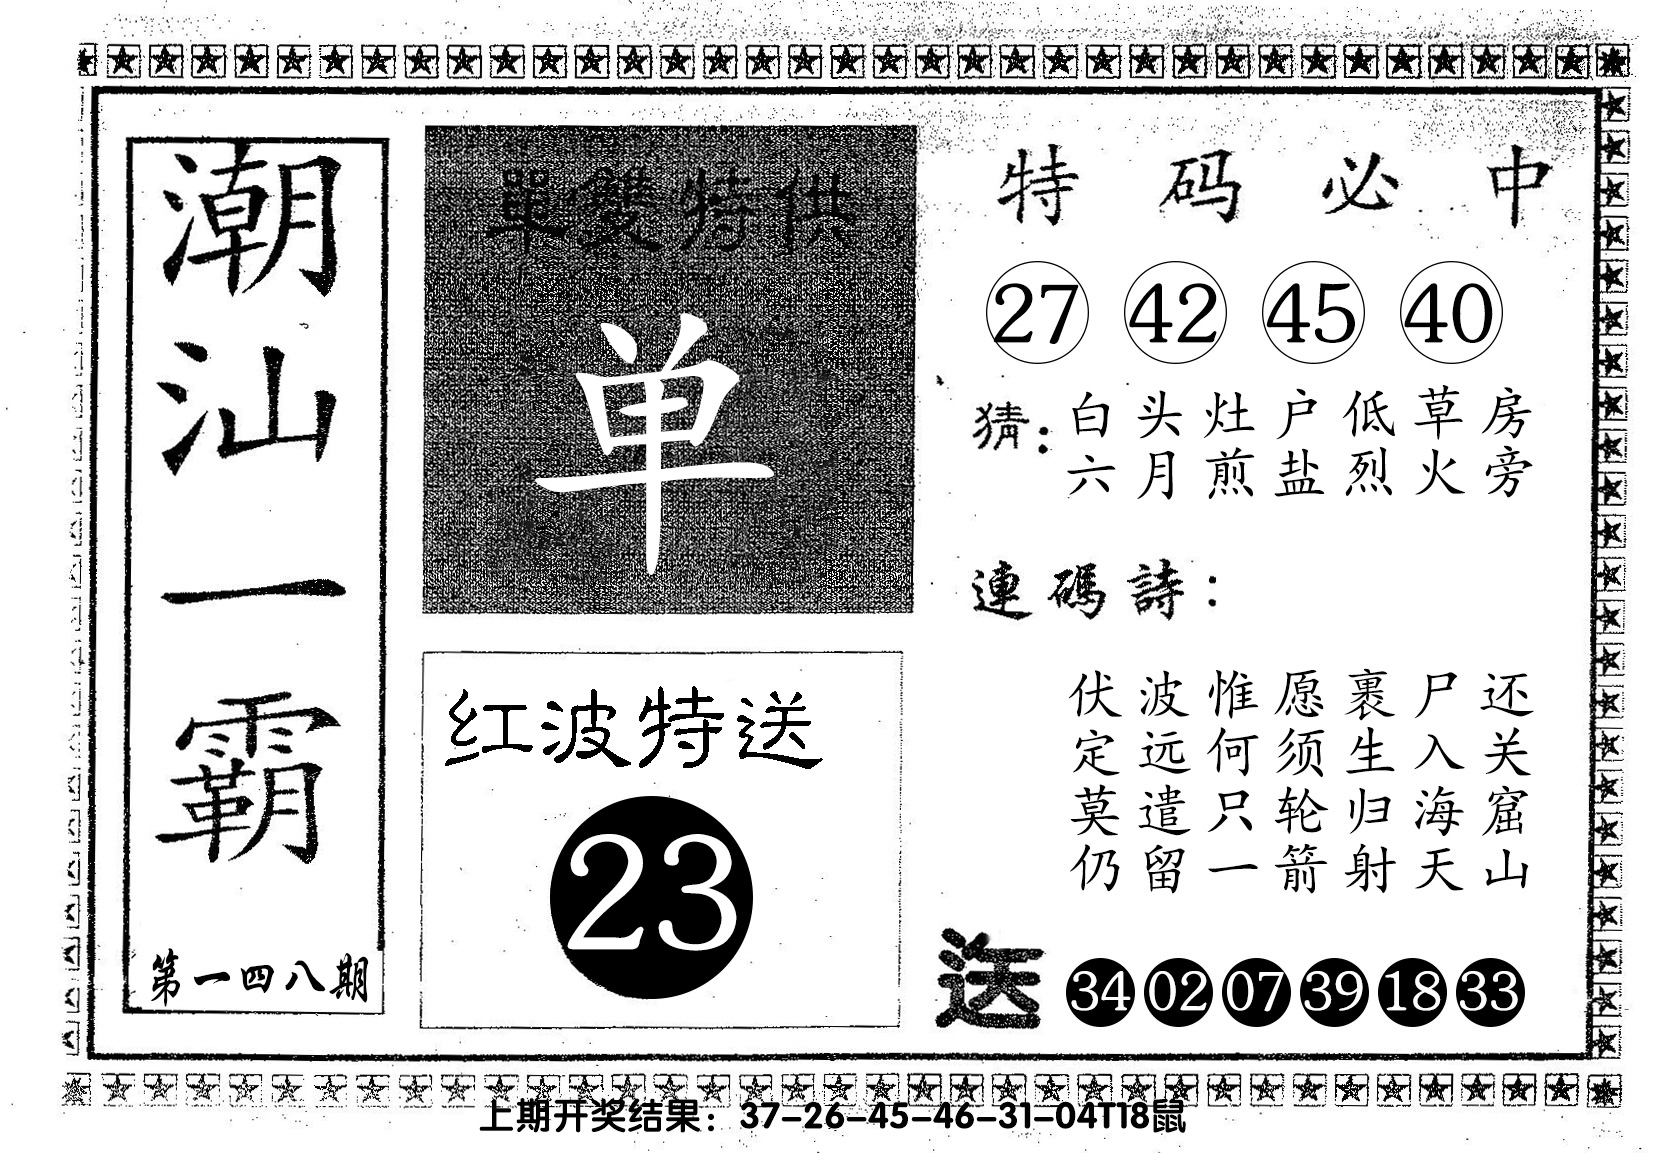 潮汕一霸
第一四八期
單雙特供
单
红波特送
23
特码必中
27 42 45 40
猜：
白头灶户低草房
六月煎盐烈火旁
連碼詩：
伏波惟愿裹尸还
定远何须生入关
莫遣只轮归海窟
仍留一箭射天山
送 34 02 07 39 18 33
上期开奖结果：37-26-45-46-31-04T18鼠